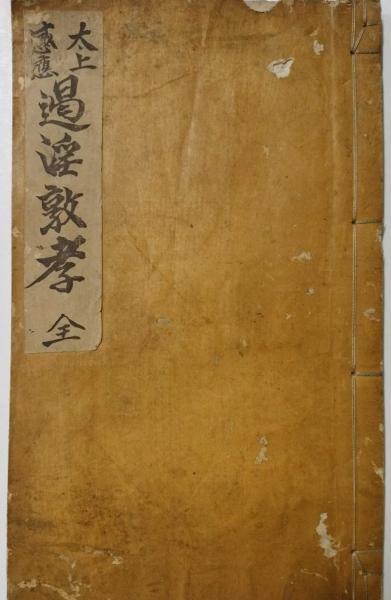 太上
感應
遏淫敦孝
全